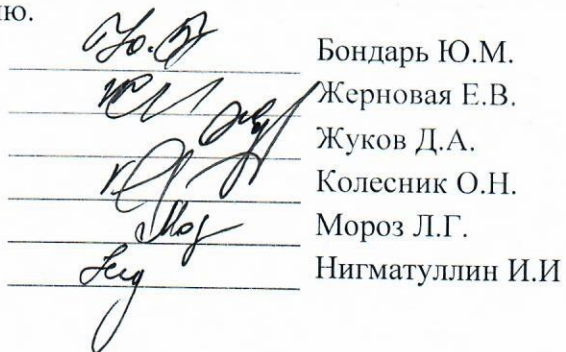 ию.
Бондарь Ю.М.
Жерновая Е.В.
Жуков Д.А.
Колесник О.Н.
Мороз Л.Г.
Нигматуллин И.И